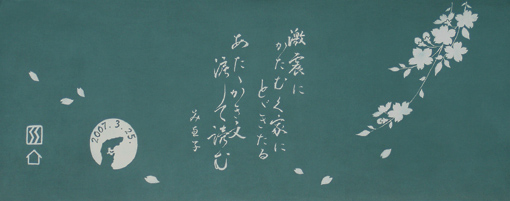 激震に
かたむく家に
とゞきたる
あたゝかき文
涙して読む
2007.3.25.